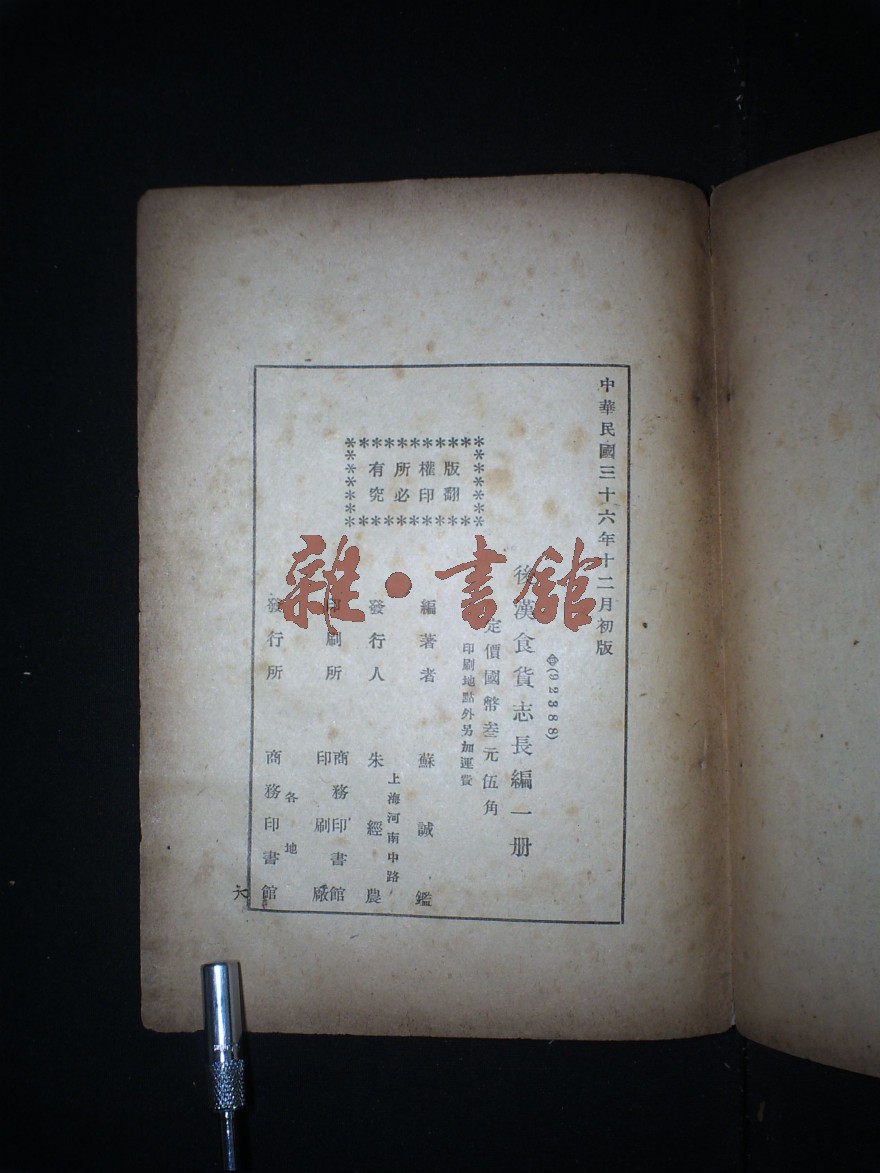 中華民國三十六年十二月初版
(92388)
後漢食貨志長編一册
定價國幣叁元伍角
印刷地點外另加運費
版權所有
翻印必究
編著者 蘇誠鑑
上海河南中路
發行人 朱經農
印刷所 商務印書館印刷廠
各地
發行所 商務印書館
雜·書館